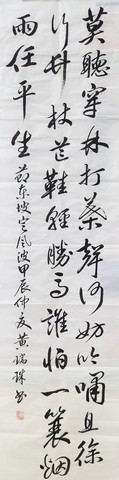 莫聽穿林打葉聲何妨吟嘯且徐
行竹杖芒鞋輕勝馬誰怕一蓑烟
雨任平生
節東坡定風波甲辰仲夏黃瑞珠書